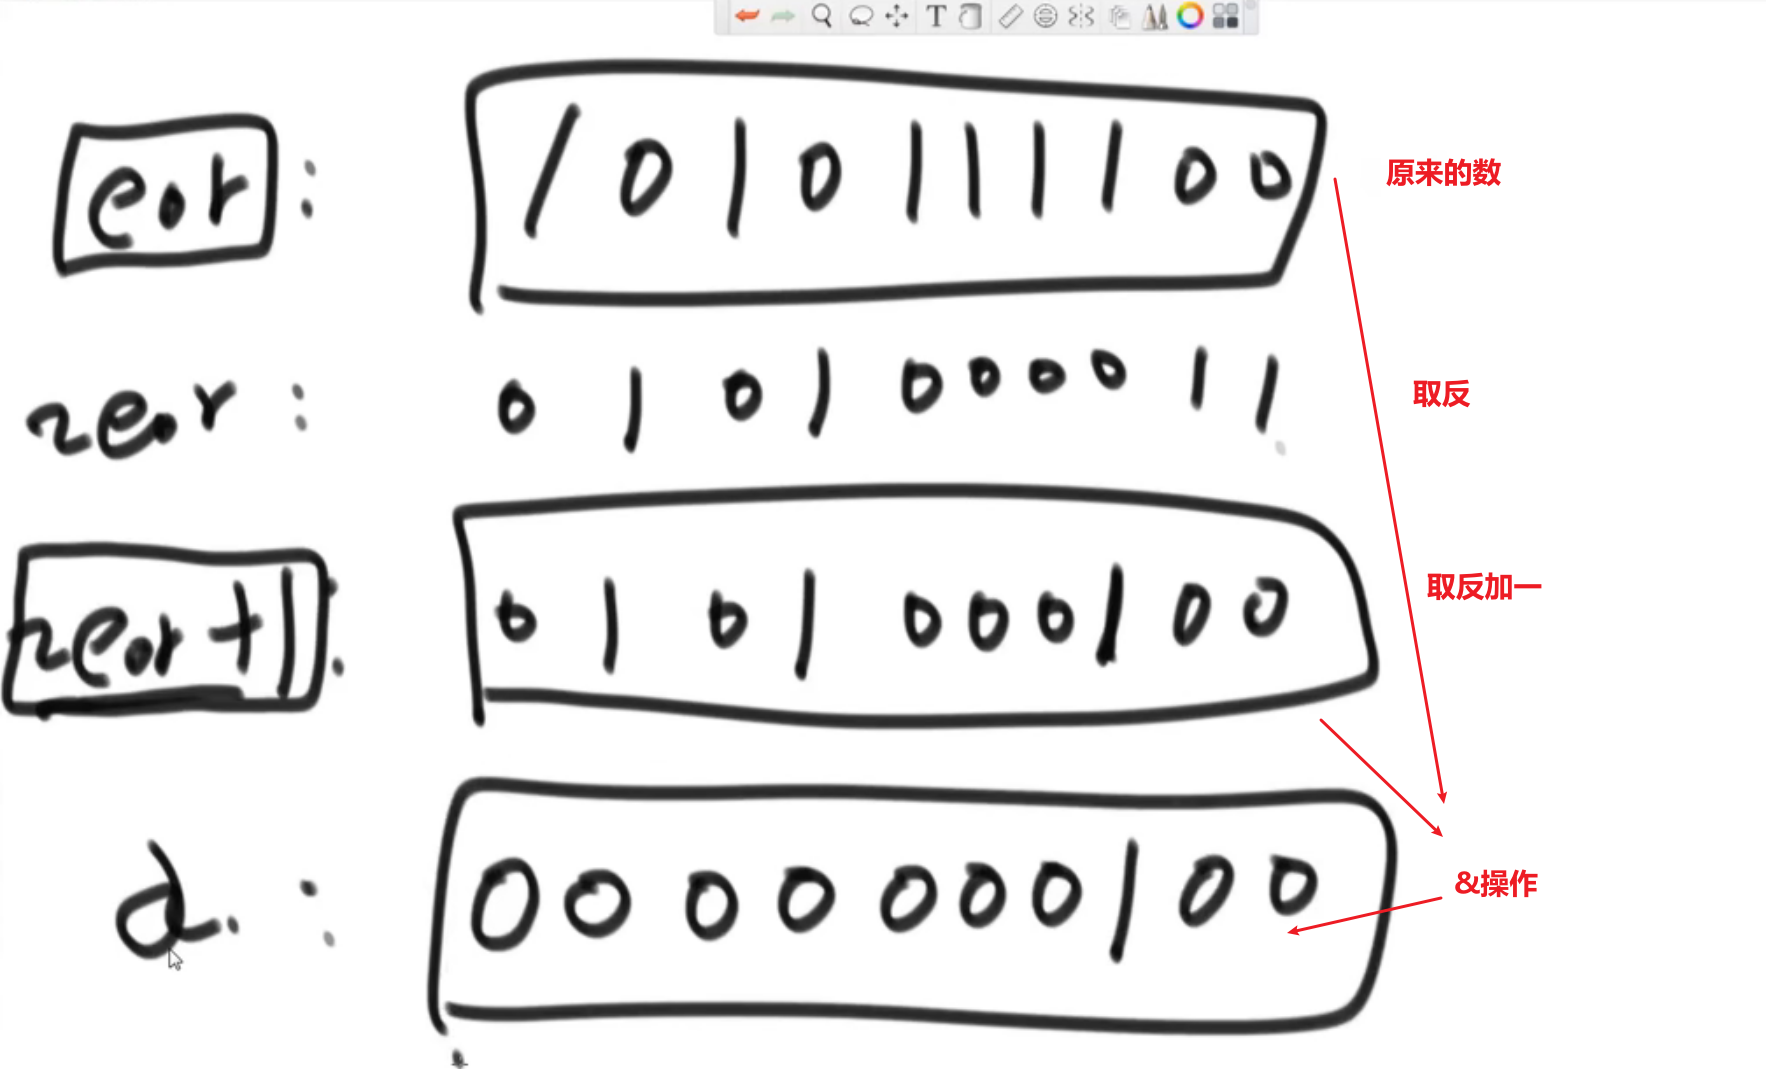 eor : 1010111100 原来的数
~eor : 0101000011 取反
~eor+1 : 0101000100 取反加一
d : 0000000100 &操作